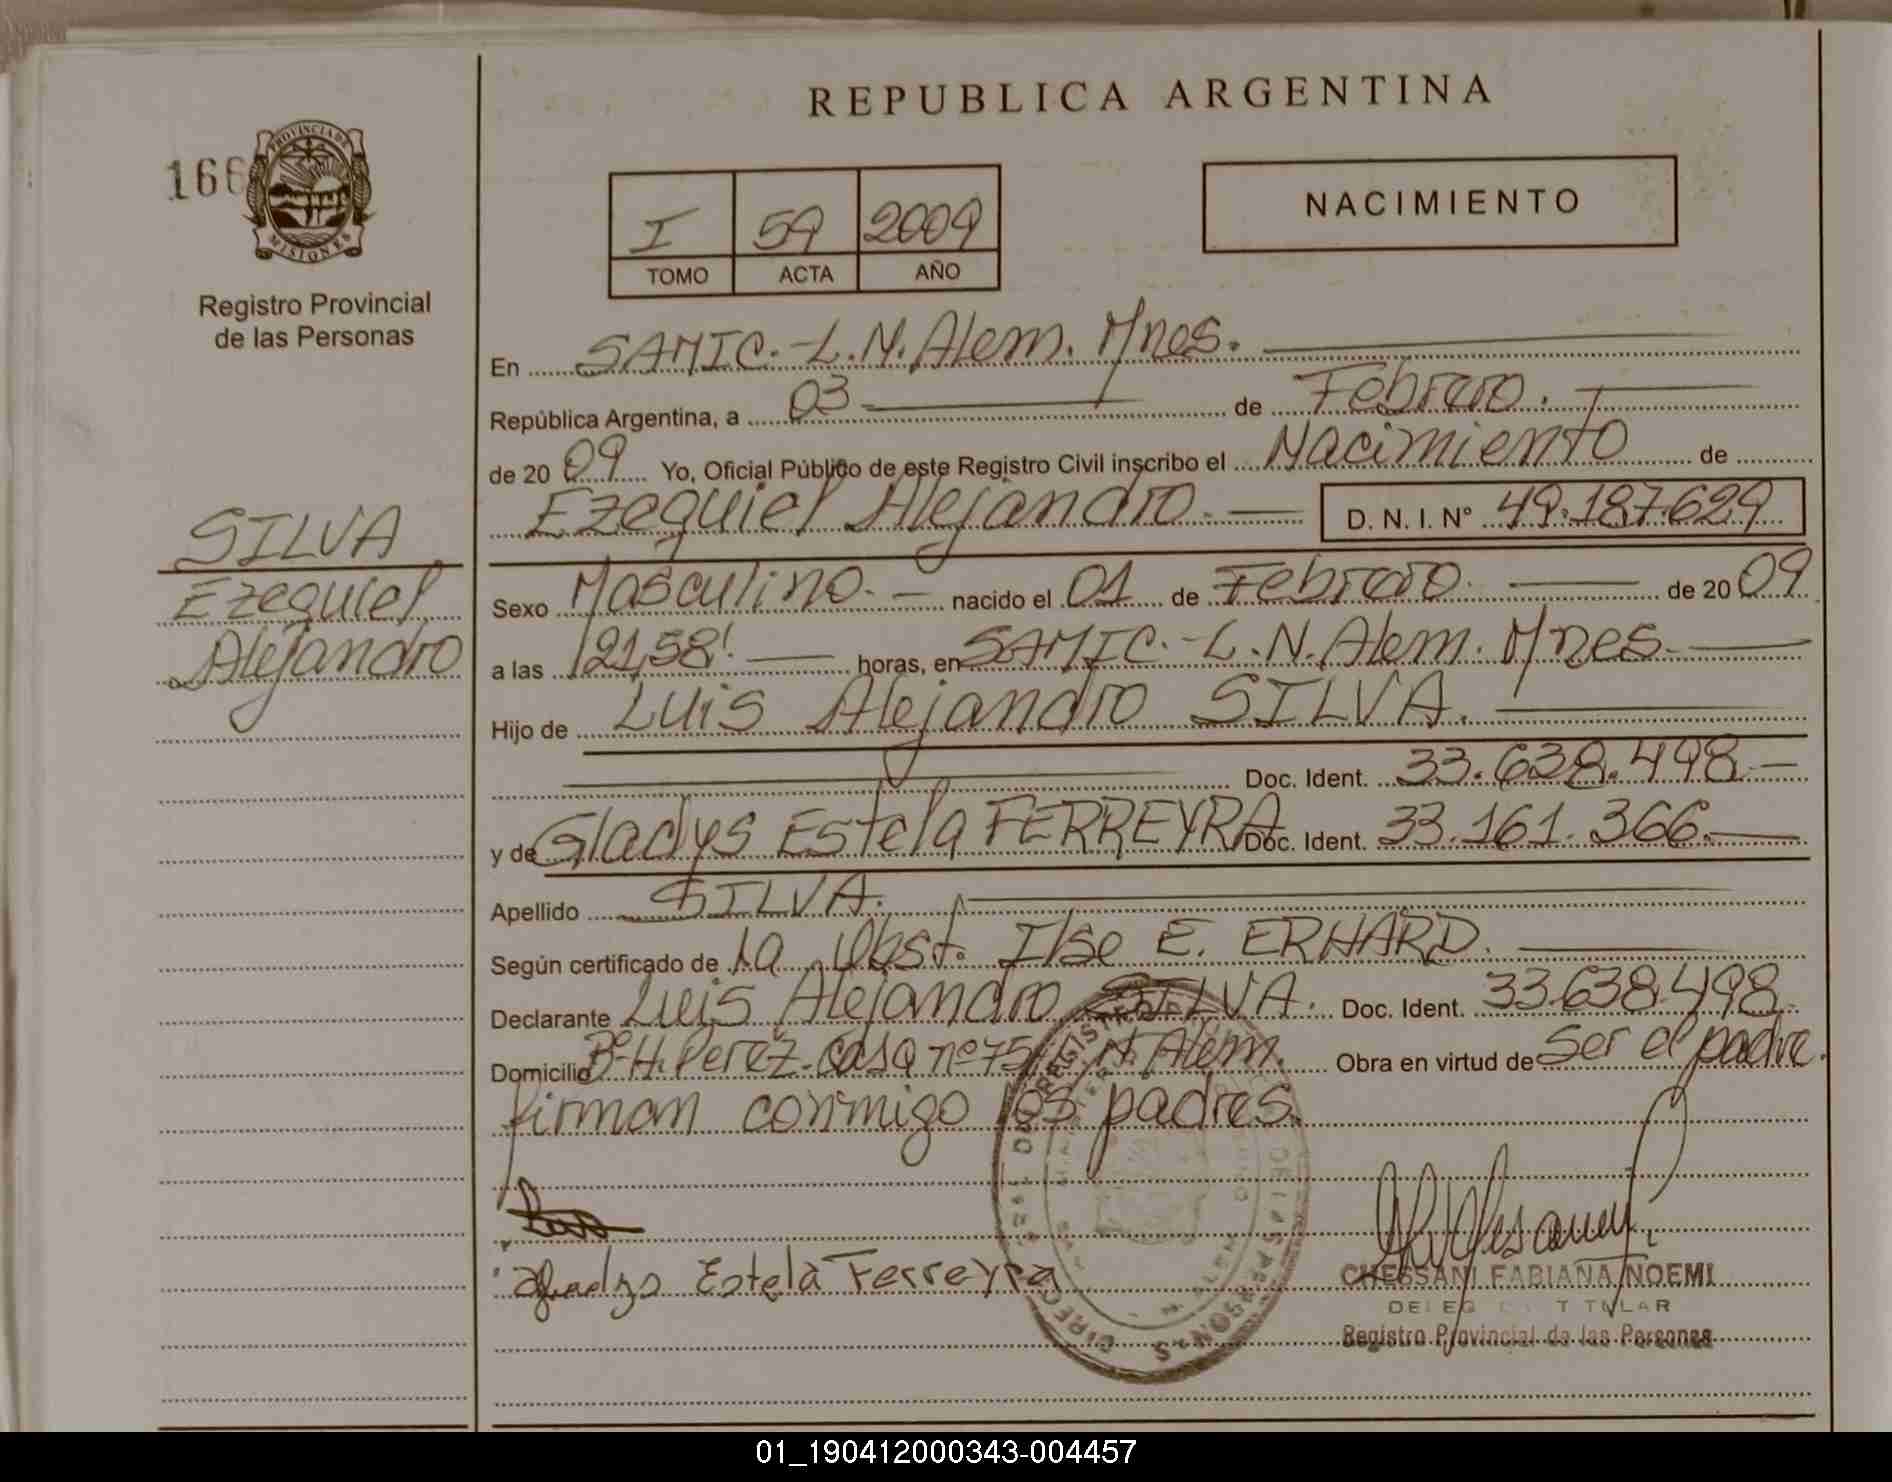 REPUBLICA ARGENTINA
166
PROVINCIA DE
MISIONES
Registro Provincial
de las Personas
I 59 2009
TOMO ACTA AÑO
NACIMIENTO
En SAMIC.-L.N.Alem. Mnes.
República Argentina, a 03 de Febrero.
de 20 09 Yo, Oficial Público de este Registro Civil inscribo el Nacimiento de
Ezequiel Alejandro. D. N. I. Nº 49.187.629
SILVA
Ezequiel
Alejandro
Sexo Masculino. nacido el 01 de Febrero. de 20 09
a las 21,58' horas, en SAMIC.-L.N.Alem. Mnes.
Hijo de Luis Alejandro SILVA.
Doc. Ident. 33.638.498
y de Gladys Estela FERREYRA Doc. Ident. 33.161.366.
Apellido SILVA.
Según certificado de la Obst. Ilse E. ERHARD.
Declarante Luis Alejandro SILVA. Doc. Ident. 33.638.498
Domicilio Bº-H.Perez-casa nº75 N.Alem. Obra en virtud de ser el padre.
firman conmigo los padres.
Estela Ferreyra
CHESSANI FABIANA NOEMI
TITULAR
Registro Provincial de las Personas
01_190412000343-004457